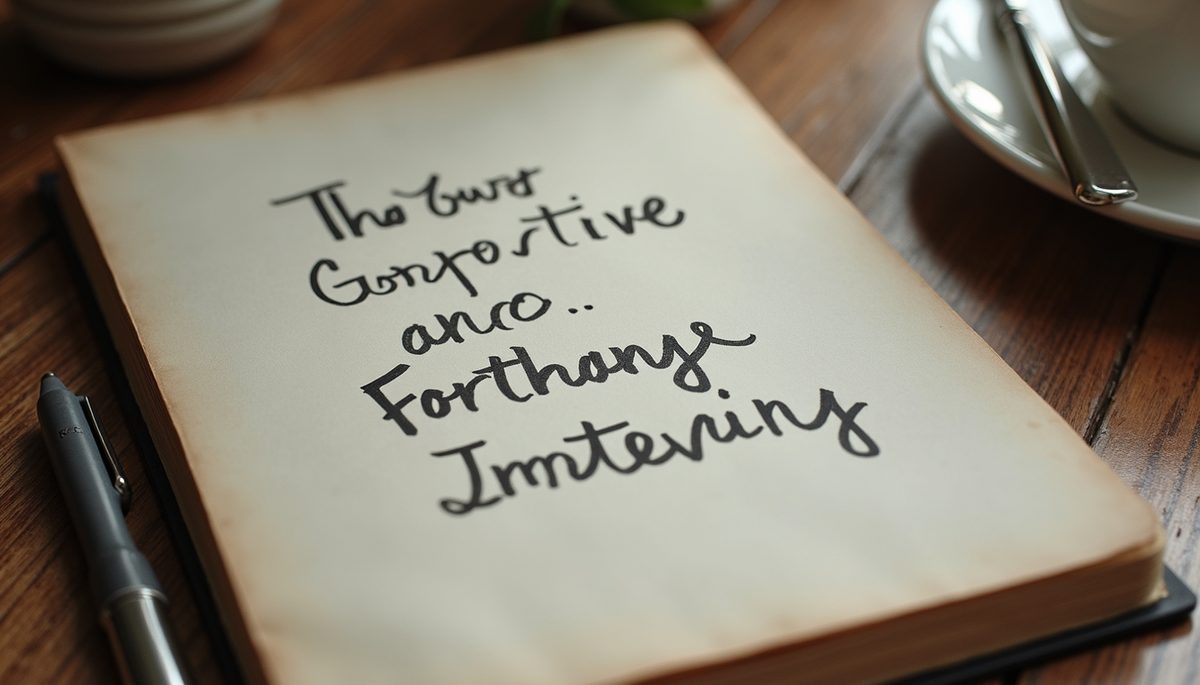 The buvs
Gonportive
anco..
Forthange
Imntevining